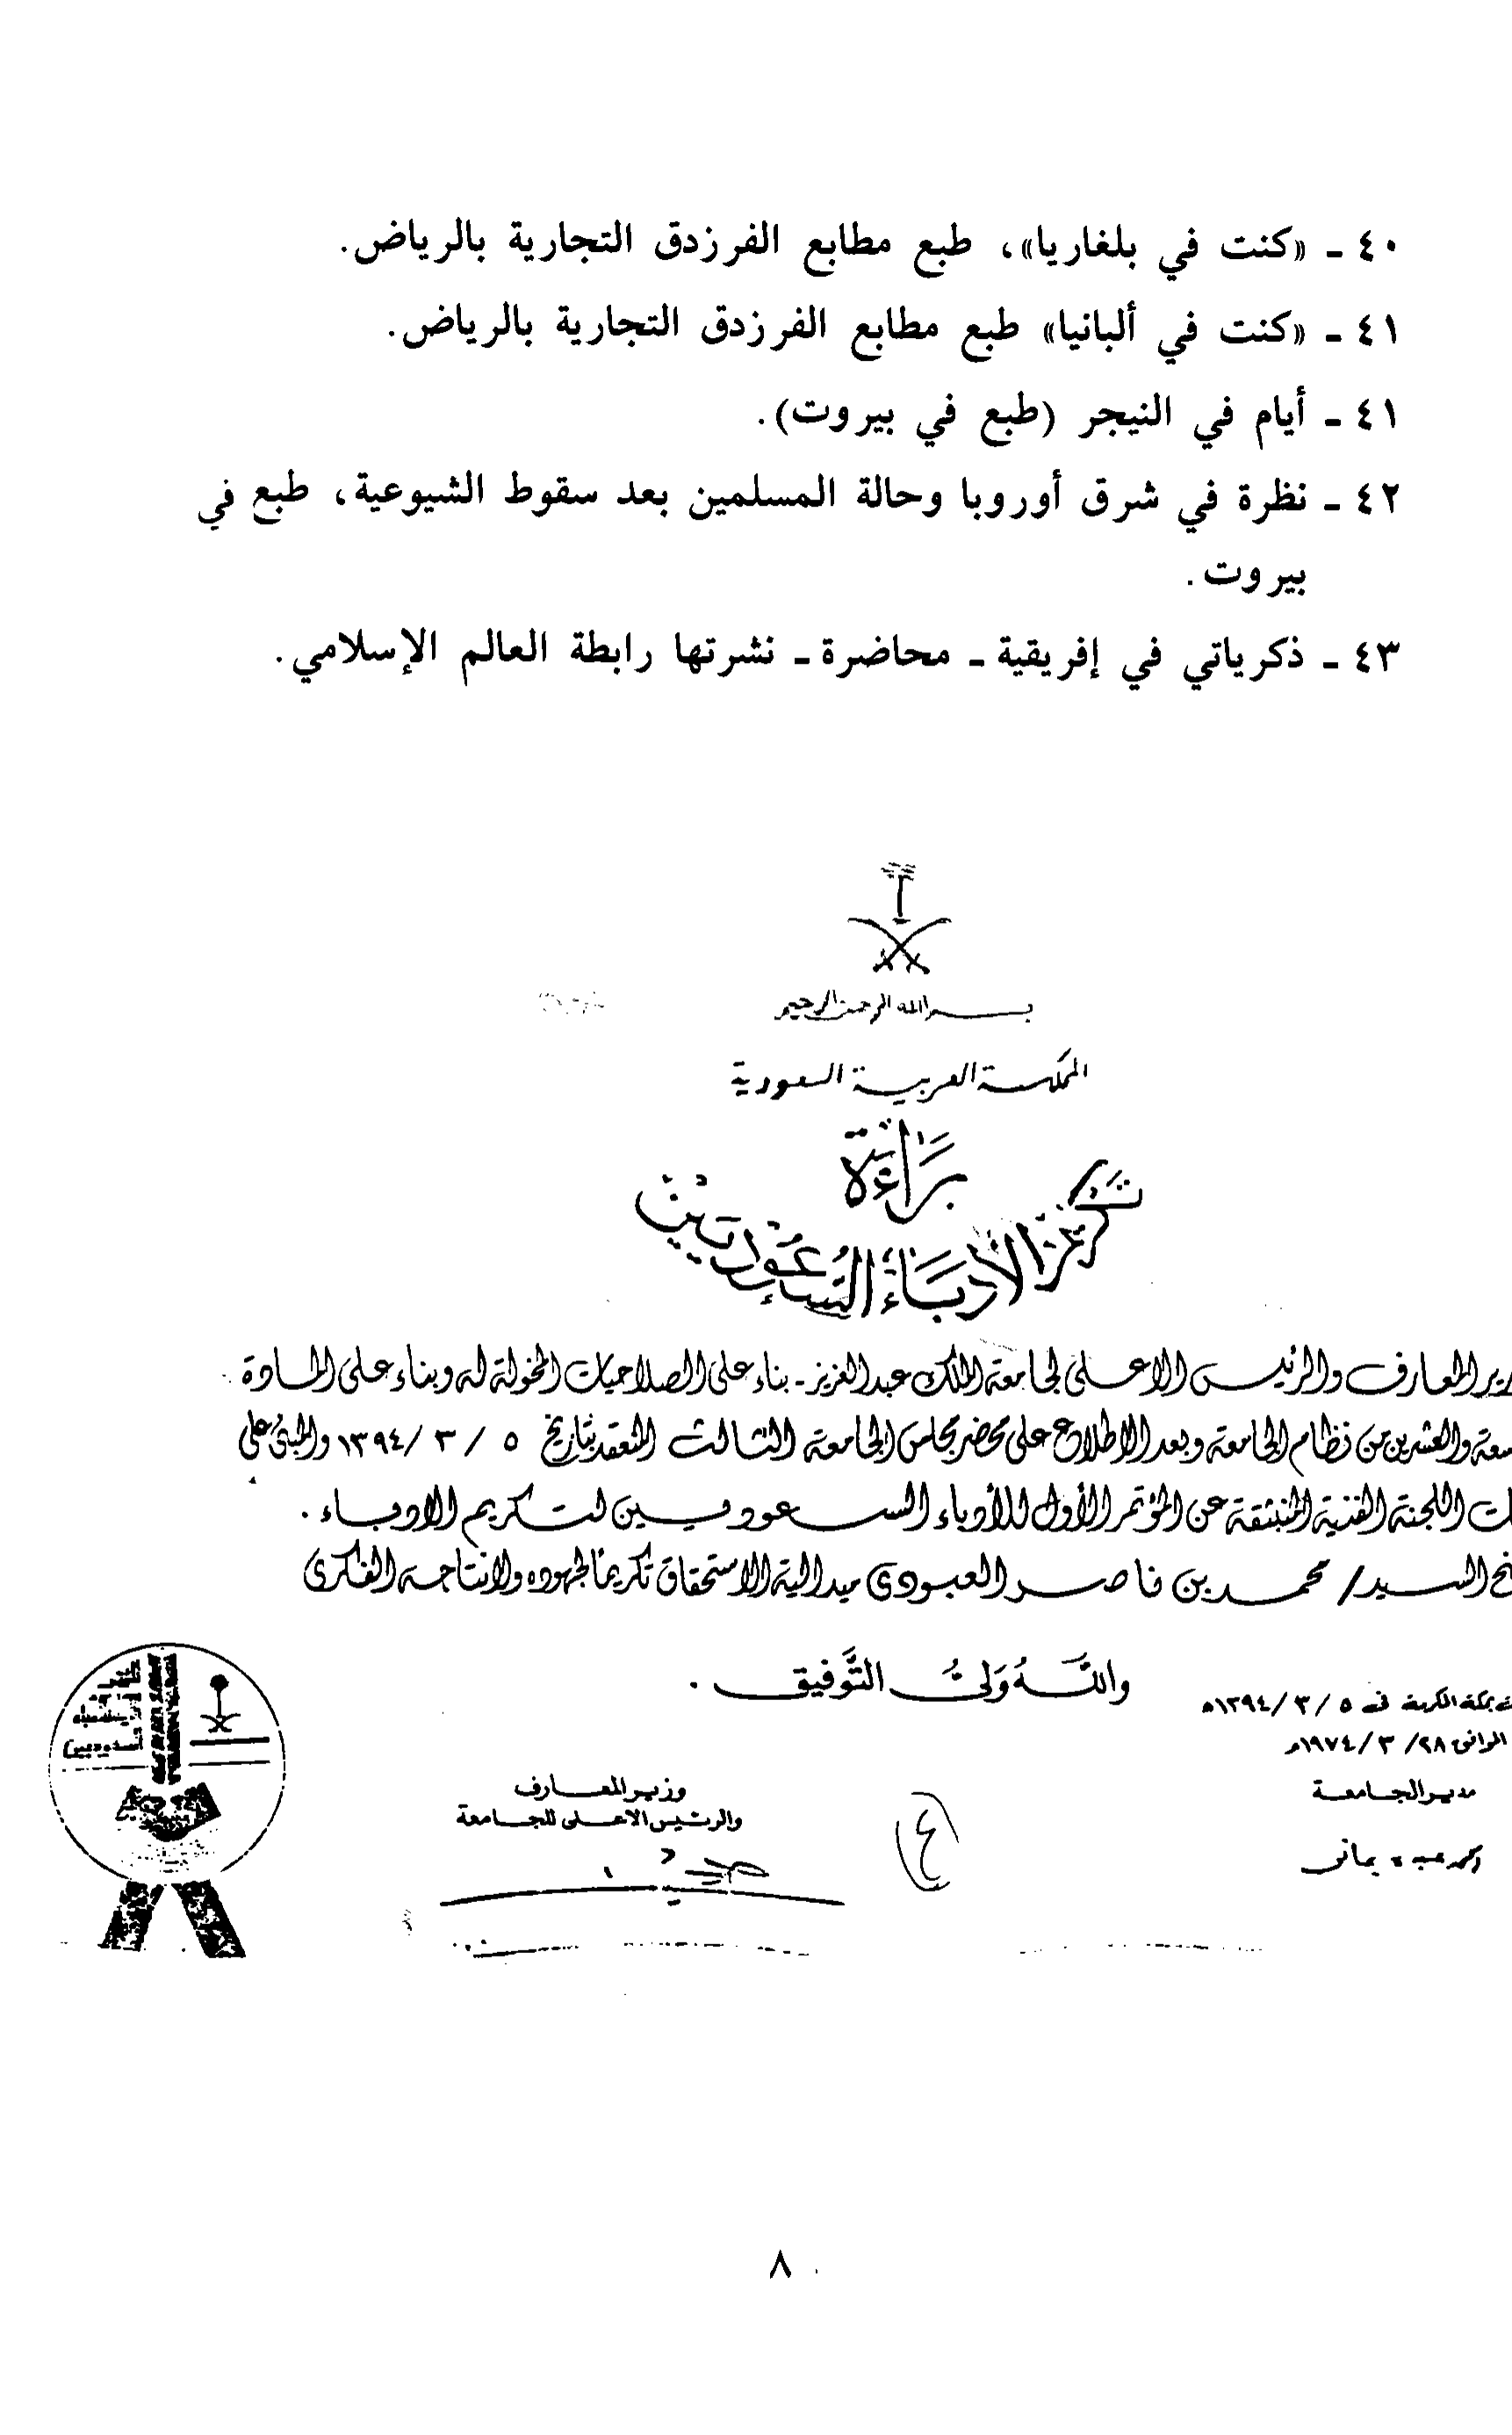 ٤٠ ـ «كنت في بلغاريا»، طبع مطابع الفرزدق التجارية بالرياض.
٤١ ـ «كنت في ألبانيا» طبع مطابع الفرزدق التجارية بالرياض.
٤١ ـ أيام في النيجر (طبع في بيروت).
٤٢ ـ نظرة في شرق أوروبا وحالة المسلمين بعد سقوط الشيوعية، طبع في
بيروت.
٤٣ ـ ذكرياتي في إفريقية ـ محاضرة ـ نشرتها رابطة العالم الإسلامي.
بسم الله الرحمن الرحيم
المملكة العربية السعودية
بَرَاءَة
تكريم الأدباء السعوديين
ير المعارف والرئيس الاعلى لجامعة الملك عبد العزيز - بناء على الصلاحيات المخولة له وبناء على المادة
سعة والعشرين من نظام الجامعة وبعد الاطلاع على محضر مجلس الجامعة الثالث المنعقد بتاريخ ٥ /٣ /١٣٩٤ والمبنى على
ات اللجنة الفنية المنبثقة عن المؤتمر الأول للأدباء السعوديين لتكريم الادباء .
نح السيد/ محمد بن ناصر العبودي ميدالية الاستحقاق تكريمًا لجهوده ولانتاجه الفكرى
والله ولي التَّوفيق .
بمكة المكرمة في ٥ /٣ /١٣٩٤هـ
الموافق ٢٨/ ٣ /١٩٧٤م
مدير الجامعة
وزير المعارف
والرئيس الاعلى للجامعة
عبده يمانى
(٤)
السعوديين
٨